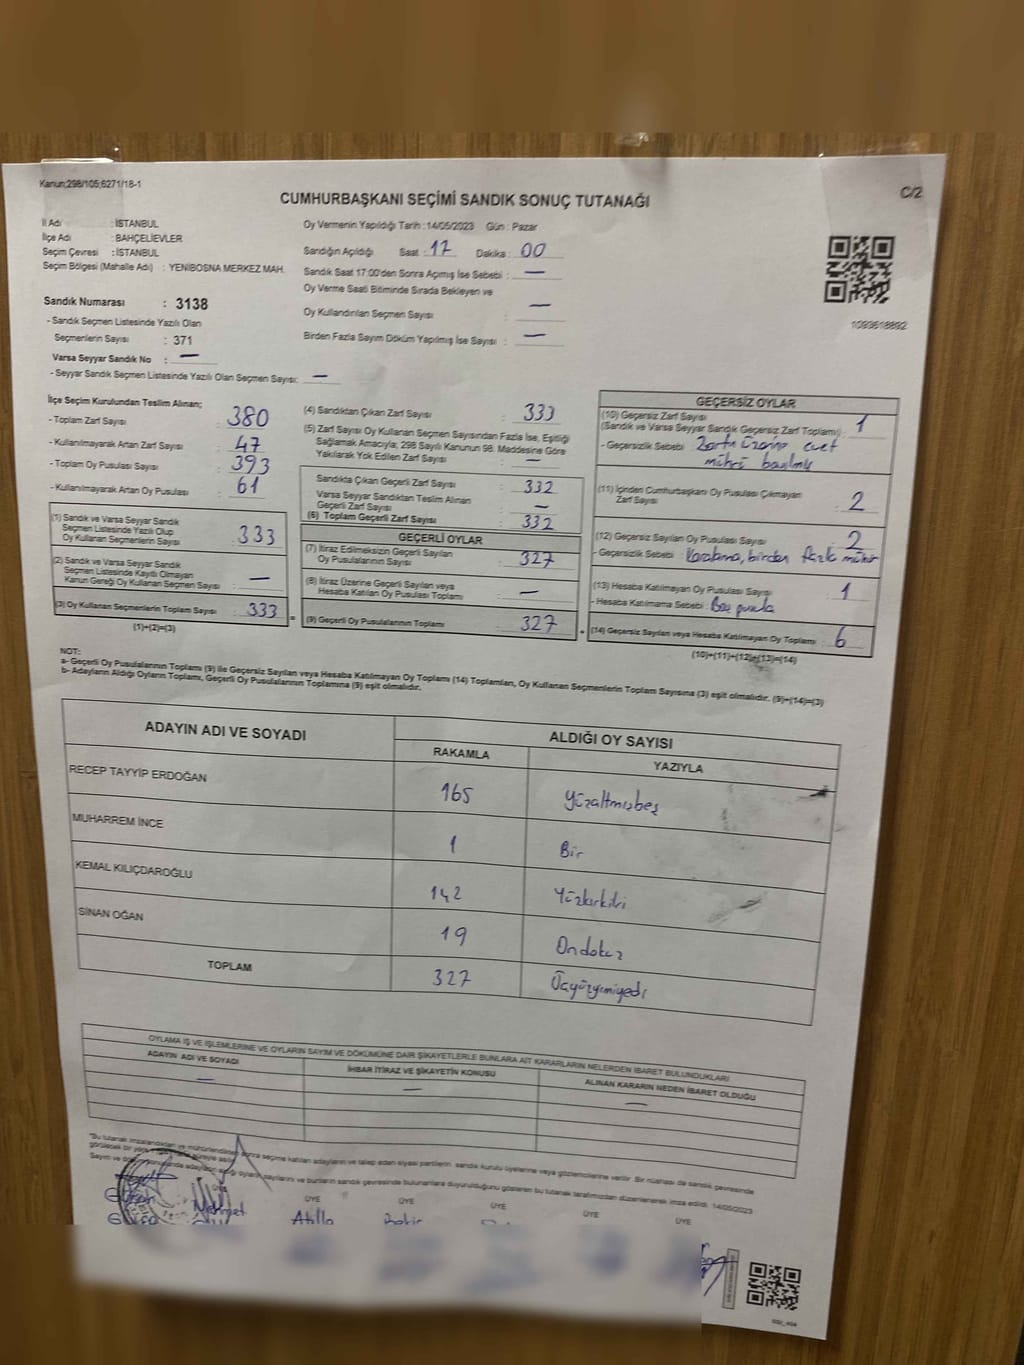 Kanun;298/105;6271/18-1
C/2
CUMHURBAŞKANI SEÇİMİ SANDIK SONUÇ TUTANAĞI
İl Adı : İSTANBUL
İlçe Adı : BAHÇELİEVLER
Seçim Çevresi : İSTANBUL
Seçim Bölgesi (Mahalle Adı) : YENİBOSNA MERKEZ MAH.
Sandık Numarası : 3138
- Sandık Seçmen Listesinde Yazılı Olan
Seçmenlerin Sayısı : 371
Varsa Seyyar Sandık No : —
- Seyyar Sandık Seçmen Listesinde Yazılı Olan Seçmen Sayısı: —
Oy Vermenin Yapıldığı Tarih :14/05/2023 Gün : Pazar
Sandığın Açıldığı Saat : 17 Dakika : 00
Sandık Saat 17:00'den Sonra Açımış İse Sebebi : —
Oy Verme Saati Bitiminde Sırada Bekleyen ve
Oy Kullandırılan Seçmen Sayısı : —
Birden Fazla Sayım Döküm Yapılmış İse Sayısı : —
1093618892
İlçe Seçim Kurulundan Teslim Alınan;
- Toplam Zarf Sayısı : 380
- Kullanılmayarak Artan Zarf Sayısı : 47
- Toplam Oy Pusulası Sayısı : 393
- Kullanılmayarak Artan Oy Pusulası : 61
(1) Sandık ve Varsa Seyyar Sandık
Seçmen Listesinde Yazılı Olup
Oy Kullanan Seçmenlerin Sayısı : 333
(2) Sandık ve Varsa Seyyar Sandık
Seçmen Listesinde Kayıtlı Olmayan
Kanun Gereği Oy Kullanan Seçmen Sayısı : —
(3) Oy Kullanan Seçmenlerin Toplam Sayısı : 333
(1)+(2)=(3)
(4) Sandıktan Çıkan Zarf Sayısı : 333
(5) Zarf Sayısı Oy Kullanan Seçmen Sayısından Fazla İse, Eşitliği
Sağlamak Amacıyla; 298 Sayılı Kanunun 98. Maddesine Göre
Yakılarak Yok Edilen Zarf Sayısı : —
Sandıkta Çıkan Geçerli Zarf Sayısı : 332
Varsa Seyyar Sandıktan Teslim Alınan
Geçerli Zarf Sayısı : —
(6) Toplam Geçerli Zarf Sayısı : 332
GEÇERLİ OYLAR
(7) İtiraz Edilmeksizin Geçerli Sayılan
Oy Pusulasının Sayısı : 327
(8) İtiraz Üzerine Geçerli Sayılan veya
Hesaba Katılan Oy Pusulası Toplamı : —
(9) Geçerli Oy Pusulalarının Toplamı : 327
GEÇERSİZ OYLAR
(10) Geçersiz Zarf Sayısı
(Sandık ve Varsa Seyyar Sandık Geçersiz Zarf Toplamı) : 1
- Geçersizlik Sebebi : Zarfın üzerine evet
mührü basılmış
(11) İçinden Cumhurbaşkanı Oy Pusulası Çıkmayan
Zarf Sayısı : 2
(12) Geçersiz Sayılan Oy Pusulası Sayısı : 2
- Geçersizlik Sebebi : Karalama, birden fazla mühür
(13) Hesaba Katılmayan Oy Pusulası Sayısı : 1
- Hesaba Katılmama Sebebi : Boş pusula
(14) Geçersiz Sayılan veya Hesaba Katılmayan Oy Toplamı : 6
(10)+(11)+(12)+(13)=(14)
NOT:
a- Geçerli Oy Pusulalarının Toplamı (9) ile Geçersiz Sayılan veya Hesaba Katılmayan Oy Toplamı (14) Toplamları, Oy Kullanan Seçmenlerin Toplam Sayısına (3) eşit olmalıdır. (9)+(14)=(3)
b- Adayların Aldığı Oyların Toplamı, Geçerli Oy Pusulalarının Toplamına (9) eşit olmalıdır.
ADAYIN ADI VE SOYADI ALDIĞI OY SAYISI
RAKAMLA YAZIYLA
RECEP TAYYİP ERDOĞAN 165 Yüzaltmışbeş
MUHARREM İNCE 1 Bir
KEMAL KILIÇDAROĞLU 142 Yüzkırkiki
SİNAN OĞAN 19 Ondokuz
TOPLAM 327 Üçyüzyirmiyedi
OYLAMA İŞ VE İŞLEMLERİNE VE OYLARIN SAYIM VE DÖKÜMÜNE DAİR ŞİKAYETLERLE BUNLARA AİT KARARLARIN NELERDEN İBARET BULUNDUKLARI
ADAYIN ADI VE SOYADI İHBAR İTİRAZ VE ŞİKAYETİN KONUSU ALINAN KARARIN NEDEN İBARET OLDUĞU
— — —
"Bu tutanak imzalandıktan ve mühürlendikten sonra seçime katılan adayların ve talep eden siyasi partilerin sandık kurulu üyelerine veya gözlemcilerine verilir. Bir nüshası da sandık çevresinde
görülecek bir yere
Sayım ve döküm sonucunda adayların aldığı oyların sayılarını ve bunların sandık çevresinde bulunanlara duyurulduğunu gösteren bu tutanak tarafımızdan düzenlenerek imza edildi. 14/05/2023
ÜYE ÜYE ÜYE ÜYE ÜYE
Mehmet Atilla Bekir